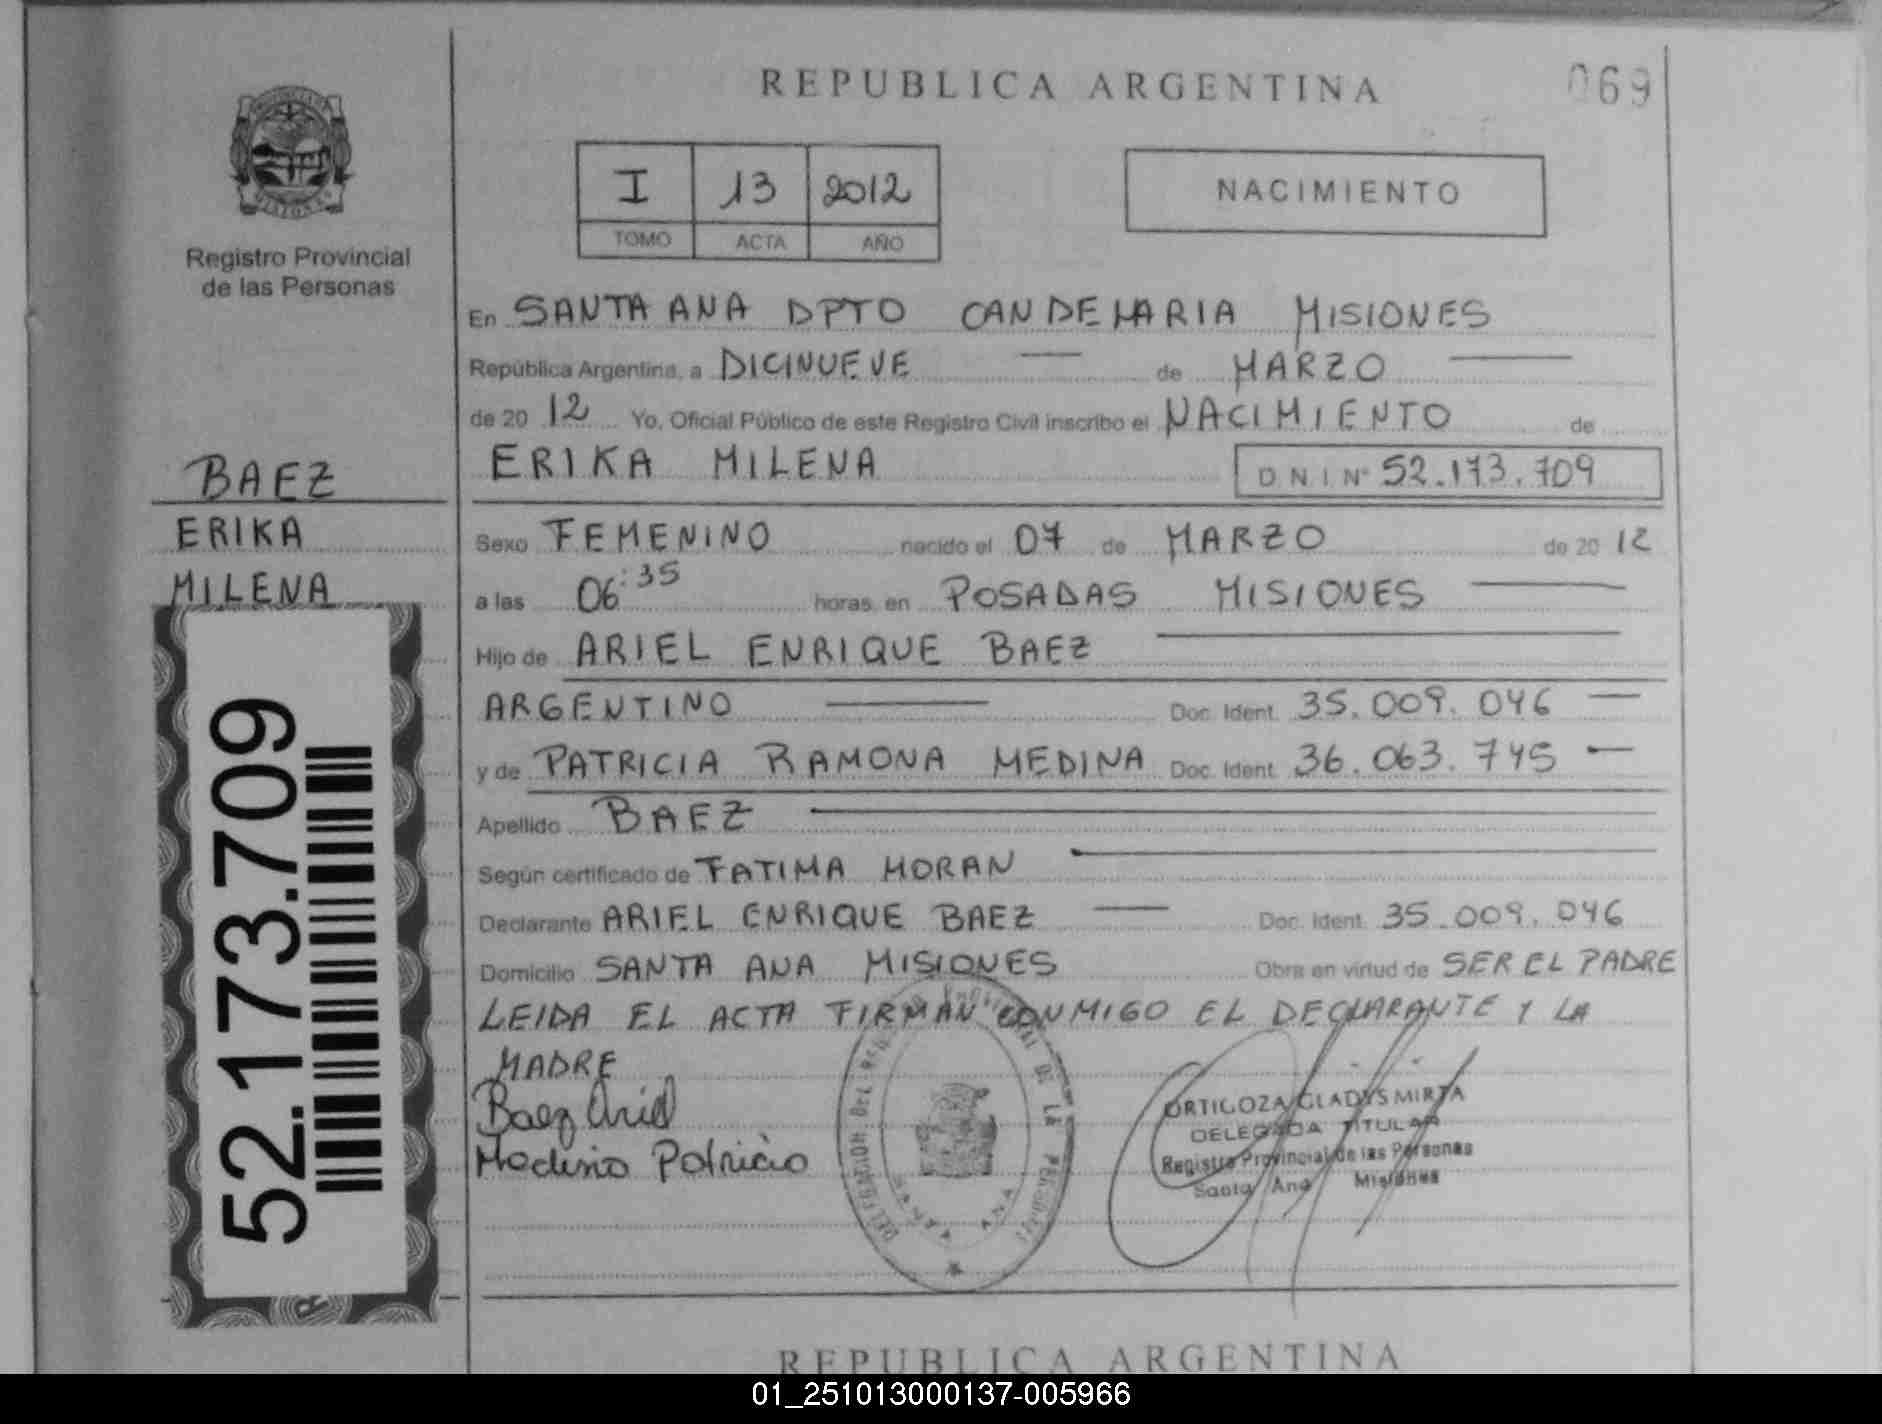 REPUBLICA ARGENTINA
069
I 13 2012
TOMO ACTA AÑO
NACIMIENTO
Registro Provincial
de las Personas
BAEZ
ERIKA
MILENA
52.173.709
En SANTA ANA DPTO CANDELARIA MISIONES
República Argentina, a DICINUEVE de MARZO
de 20 12 Yo, Oficial Público de este Registro Civil inscribo el NACIMIENTO de
ERIKA MILENA D N I Nº 52.173.709
Sexo FEMENINO nacido el 07 de MARZO de 20 12
a las 06:35 horas, en POSADAS MISIONES
Hijo de ARIEL ENRIQUE BAEZ
ARGENTINO Doc. Ident. 35.009.046
y de PATRICIA RAMONA MEDINA Doc. Ident. 36.063.745
Apellido BAEZ
Según certificado de FATIMA MORAN
Declarante ARIEL ENRIQUE BAEZ Doc. Ident. 35.009.046
Domicilio SANTA ANA MISIONES Obra en virtud de SER EL PADRE
LEIDA EL ACTA FIRMAN CONMIGO EL DECLARANTE Y LA
MADRE
Baez Ariel
Medina Patricia
DELEGACION DEL REGISTRO PROVINCIAL DE LAS PERSONAS
SANTA ANA
ORTIGOZA GLADYS MIRTA
DELEGADA TITULAR
Registro Provincial de las Personas
Santa Ana Misiones
REPUBLICA ARGENTINA
01_251013000137-005966